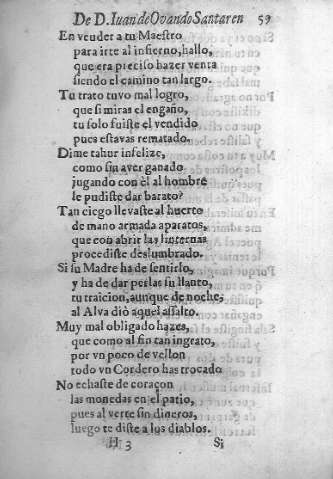 De D. Iuan de Ovando Santaren 59
En vender a tu Maestro
para irte al infierno, hallo,
que era preciso hazer venta
siendo el camino tan largo.
Tu trato tuvo mal logro,
que si miras el engaño,
tu solo fuiste el vendido
pues estavas rematado.
Dime tahur infelize,
como sin aver ganado
jugando con èl al hombre
le pudiste dar barato?
Tan ciego llevaste al huerto
de mano armada aparatos,
que con abrir las linternas
procediste deslumbrado.
Si su Madre ha de sentirlo,
y ha de dar perlas su llanto,
tu traicion, aunque de noche,
al Alva diò aquel assalto.
Muy mal obligado hazes,
que como al fin tan ingrato,
por vn poco de vellon
todo vn Cordero has trocado
No echaste de coraçon
las monedas en el patio,
pues al verte sin dineros,
luego te diste a los diablos.
H 3 Si